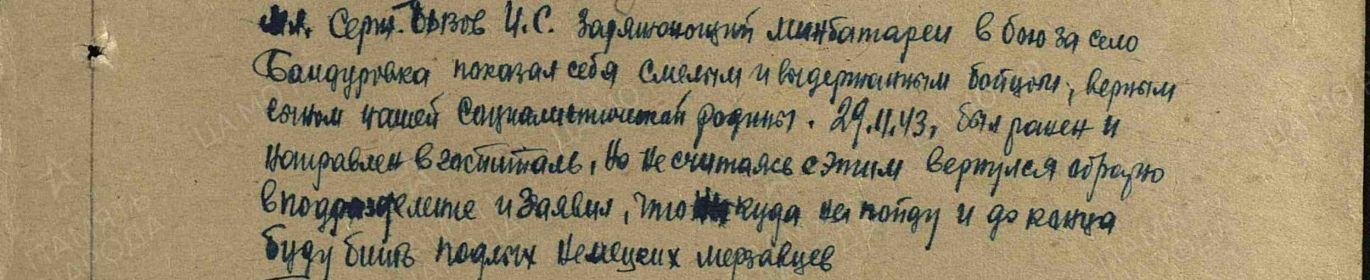 мл. Серж. Вызов И.С. Заряжающий минбатареи в бою за село
Бандуровка показал себя смелым и выдержанным бойцом, верным
сыном нашей Социалистической родины. 29.11.43, был ранен и
направлен в госпиталь, но не считаясь с этим вернулся обратно
в подразделение и заявил, что никуда не пойду и до конца
буду бить подлых немецких мерзавцев